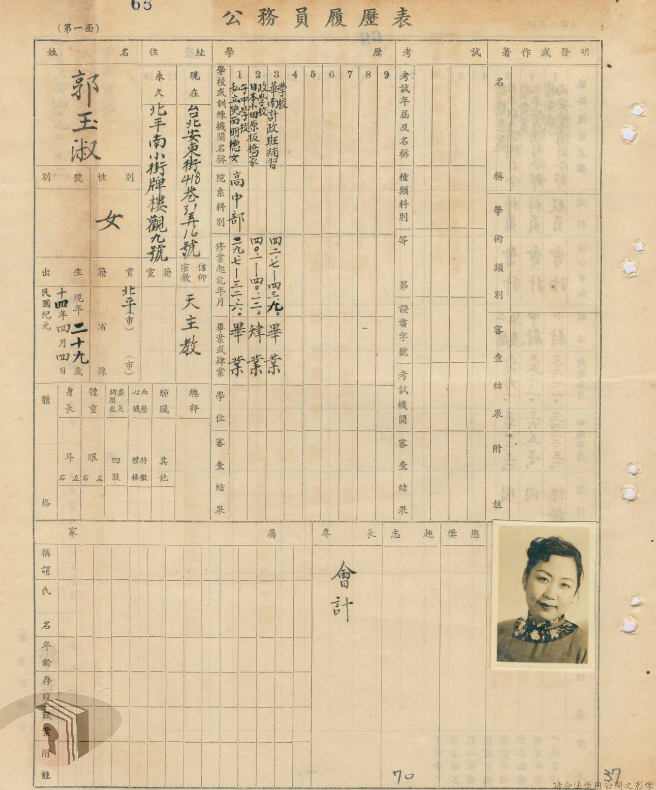 65
公務員履歷表
(第一面)
姓名
郭玉淑
別號
性別
女
出生
民國紀元
十四年四月四日
現年二十九歲
籍貫
北平(市)
省縣(市)
住址
永久
北平南小街牌樓觀九號
現在
台北安東街418巷31弄16號
籍寶
宗教信仰
天主教
體格
身長
體重
心臟
血壓
肺臟
總評
耳
右
左
眼
右
左
四肢
體格
特徵
其他
學歷
1
2
3
4
5
6
7
8
9
學校或訓練機關名稱
院系科別
高中部
修業起訖年月
二九.七—三二.六.
四〇.一—四〇.十二.
四二.七—四三.九.
畢業或肄業
畢業
肄業
畢業
學位
審查結果
考試
考試年屆及名稱
種類科別
等第
證書字號
考試機關
審查結果
著作或發明
名稱
學術類別
審查結果
附註
家屬
稱謂
氏名
年齡
存歿
職業
附註
專長
會計
志趣
獎懲
70
37